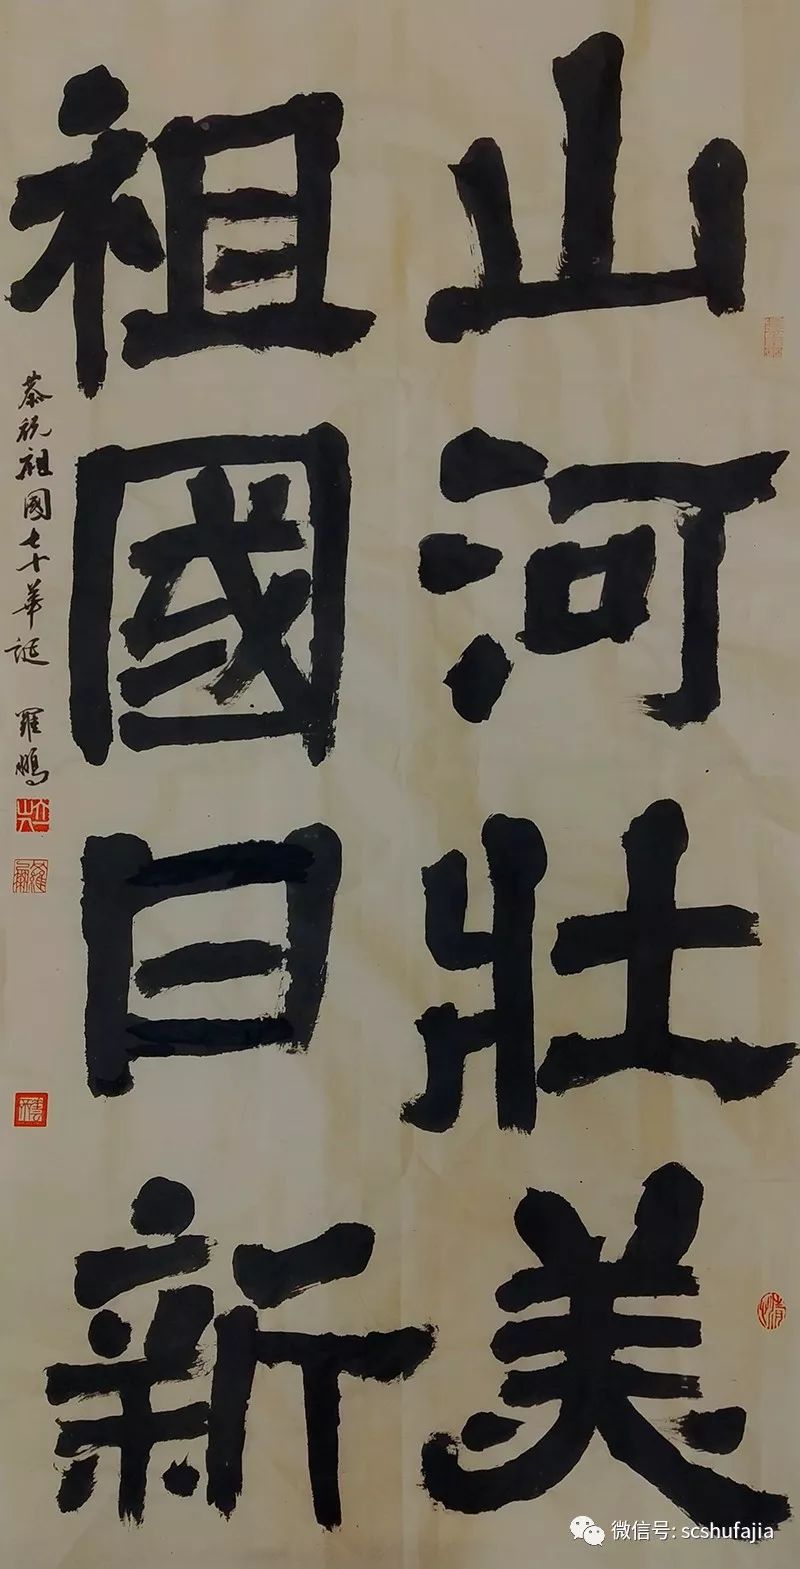 山河壯美
祖國日新
恭祝祖國七十華誕 羅鵬
微信号: scshufajia